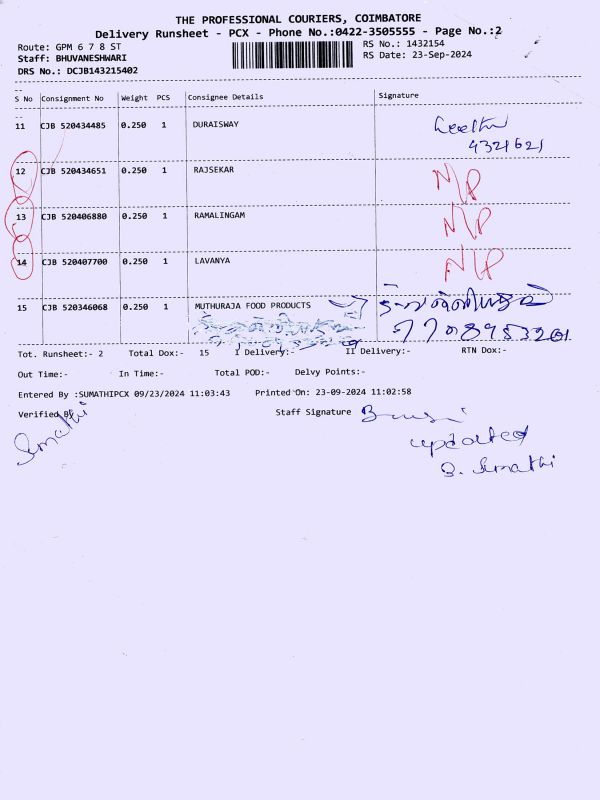 THE PROFESSIONAL COURIERS, COIMBATORE
Delivery Runsheet - PCX - Phone No.:0422-3505555 - Page No.:2
Route: GPM 6 7 8 ST
RS No.: 1432154
Staff: BHUVANESHWARI
RS Date: 23-Sep-2024
DRS No.: DCJB143215402
S No Consignment No Weight PCS Consignee Details Signature
11 CJB 520434485 0.250 1 DURAISWAY
4321621
12 CJB 520434651 0.250 1 RAJSEKAR N/P
13 CJB 520406880 0.250 1 RAMALINGAM N/P
14 CJB 520407700 0.250 1 LAVANYA N/P
15 CJB 520346068 0.250 1 MUTHURAJA FOOD PRODUCTS
Tot. Runsheet:- 2 Total Dox:- 15 I Delivery:- II Delivery:- RTN Dox:-
Out Time:- In Time:- Total POD:- Delvy Points:-
Entered By :SUMATHIPCX 09/23/2024 11:03:43 Printed On: 23-09-2024 11:02:58
Verified By Staff Signature
Sumathi
updated
S. Sumathi